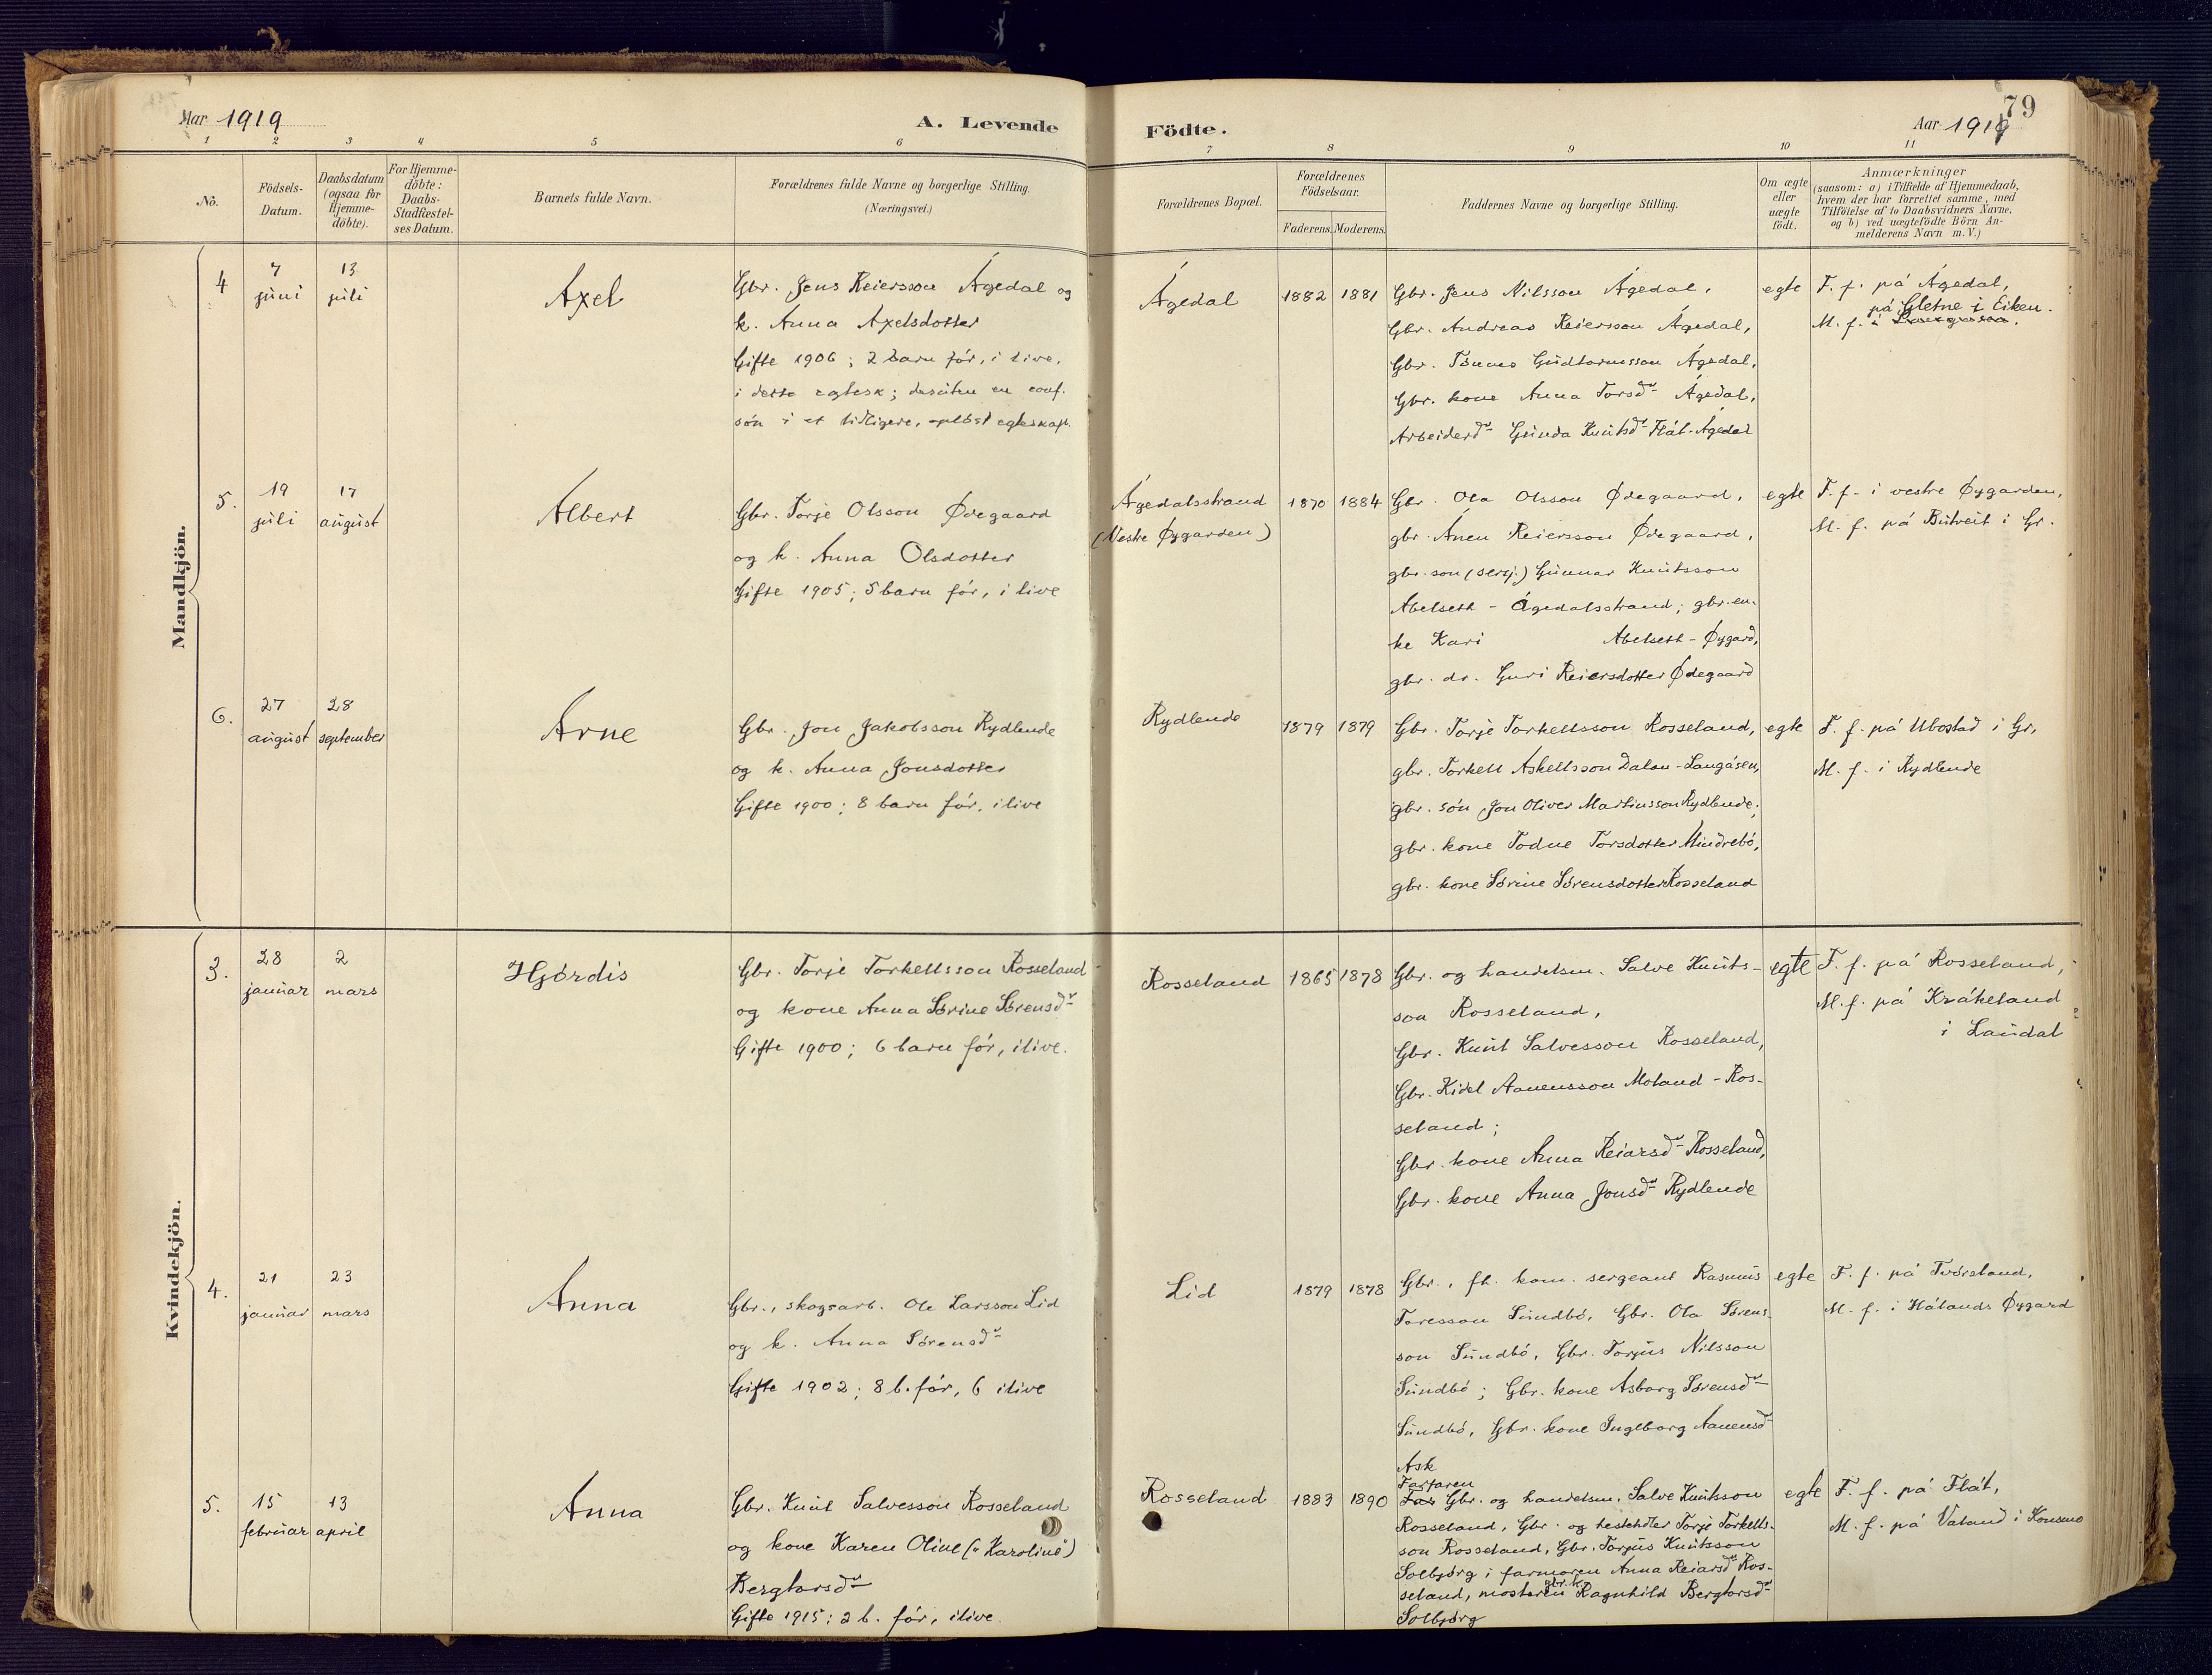 Aar 1919
A. Levende
Födte.
Aar 1919
79
1 2 3 4 5 6 7 8 9 10 11
No.
Födsels-
Datum.
Daabsdatum
(ogsaa for
Hjemme-
döbte).
For Hjemme-
döbte:
Daabs-
Stadfæstel-
ses Datum.
Barnets fulde Navn.
Forældrenes fulde Navne og borgerlige Stilling.
(Næringsvei.)
Forældrenes Bopæl.
Forældrenes
Födselsaar.
Faderens. Moderens.
Faddernes Navne og borgerlige Stilling.
Om ægte
eller
uægte
födt.
Anmærkninger
(saasom: a) i Tilfælde af Hjemmedaab,
hvem der har forrettet samme, med
Tilföielse af to Daabsvidners Navne,
og b) ved uægtefödte Börn An-
melderens Navn m. V.)
Mandkjön.
4
7
juni
13
juli
Axel
Gbr. Jens Reiersson Ågedal og
k. Anna Axelsdotter
Gifte 1906; 2 barn før, i live,
i dette egtesk; desuten en conf.
søn i et tidligere, opløst egteskap.
Ågedal
1882 1881
Gbr. Jens Nilsson Ågedal,
Gbr. Andreas Reiersson Ågedal,
Gbr. Tønnes Gudtormsson Ågedal,
Gbr. kone Anna Torsdr Ågedal,
Arbeiderdr Gunda Knutsdr Flåt-Ågedal
egte
F. f. på Ågedal,
på Gletne i Eiken.
M. f. i
5.
19
juli
17
august
Albert
Gbr. Torje Olsson Ødegaard
og k. Anna Olsdotter
Gifte 1905; 5 barn før, i live
Ågedalsstrand
(Vestre Øygarden)
1870 1884
Gbr. Ola Olsson Ødegaard,
gbr. Ånen Reiersson Ødegaard,
gbr. søn (sersj.) Gunnar Knutsson
Abelseth - Ågedalsstrand; gbr. en-
ke Kari Abelseth - Øygard,
gbr. dr. Guri Reiersdotter Ødegaard
egte
F. f. i vestre Øygarden,
M. f. på Butveit i Gr.
6.
27
august
28
september
Arne
Gbr. Jon Jakobsson Rydlende
og k. Anna Jonsdotter
Gifte 1900; 8 barn før, i live
Rydlende
1879 1879
Gbr. Torje Torkellsson Rosseland,
gbr. Torkell Askellsson Dalan-Langåsen,
gbr. søn Jon Oliver Martinsson Rydlende;
gbr. kone Todne Torsdotter Mindrebø,
gbr. kone Sørine Sørensdotter Rosseland
egte
F. f. på Ubostad i Gr,
M. f. i Rydlende
Kvindekjön.
3.
28
januar
2
mars
Hjørdis
Gbr. Torje Torkellsson Rosseland
og kone Anna Sørine Sørensdr
Gifte 1900; 6 barn før, i live.
Rosseland
1865 1878
Gbr. og handelsm. Salve Knuts-
son Rosseland,
Gbr. Knut Salvesson Rosseland,
Gbr. Kidel Aanensson Moland - Ros-
seland;
Gbr. kone Anna Reiarsdr Rosseland,
Gbr. kone Anna Jonsdr Rydlende
egte
F. f. på Rosseland,
M. f. på Kråkeland
i Laudal
4.
21
januar
23
mars
Anna
Gbr., skogsarb. Ole Larsson Lid
og k. Anna Sørensdr
Gifte 1902; 8 b. før, 6 i live
Lid
1879 1878
Gbr., fh. kom. sergeant Rasmus
Toresson Sundbø, Gbr. Ola Sørens-
son Sundbø, Gbr. Torjus Nilsson
Sundbø; Gbr. kone Asborg Sørensdr
Sundbø, Gbr. kone Ingeborg Aanensdr
Ask
egte
F. f. på Tvørstand,
M. f. i Hålands Øygard
5.
15
februar
13
april
Anna
Gbr. Knut Salvesson Rosseland
og kone Karen Oline ("Karoline")
Bergtorsdr
Gifte 1915; 2 b. før, i live.
Rosseland
1883 1890
Farfaren
Gbr. og handelsm. Salve Knutsson
Rosseland, Gbr. og hestehdler Torje Torkells-
son Rosseland, Gbr. Torjus Knutsson
Solbjørg; farmoren Anna Reiarsdr Ros-
seland, mosteren gbr. k. Ragnhild Bergtorsdr
Solbjørg
egte
F. f. på Flåt,
M. f. på Valand i Konsmo